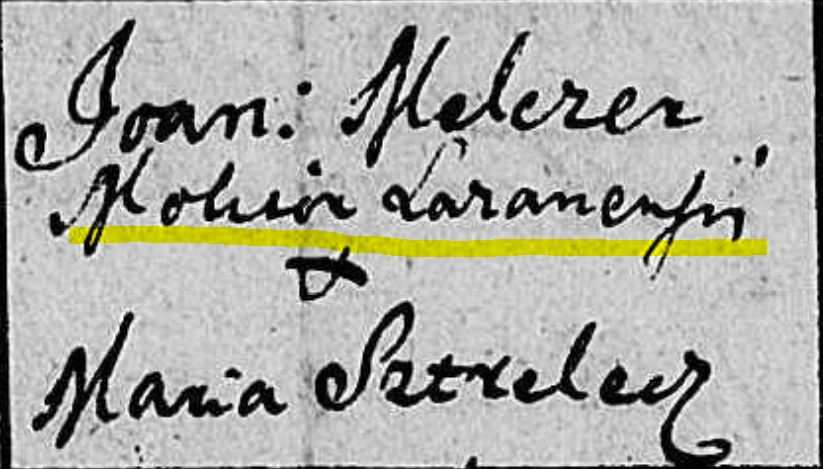 Joan: Melczer
Molitor Laranensis
&
Maria Sztrelecz